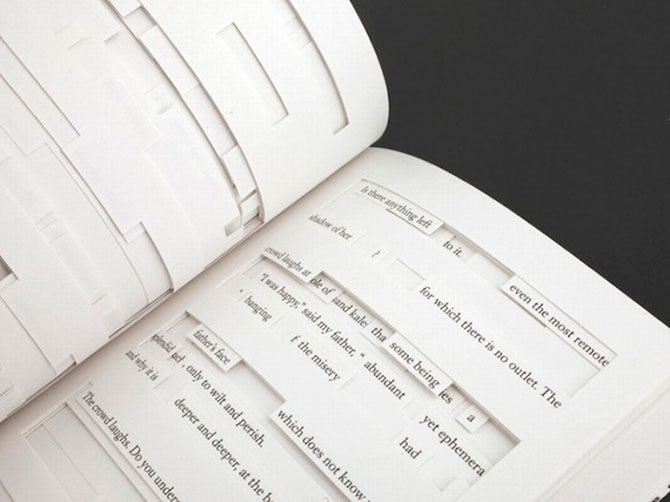 Is there anything left
to it.
even the most remote
shadow of her
?
for which there is no outlet. The
crowd laughs at
ple of
and kale
tha
some being
les
a
"I was happy," said my father, "
abundant
yet ephemera
hanging
f the misery
had
splendid
father's face
, only to wilt and perish.
which does not know
and why it is
deeper and deeper, at the b
The crowd laughs. Do you under